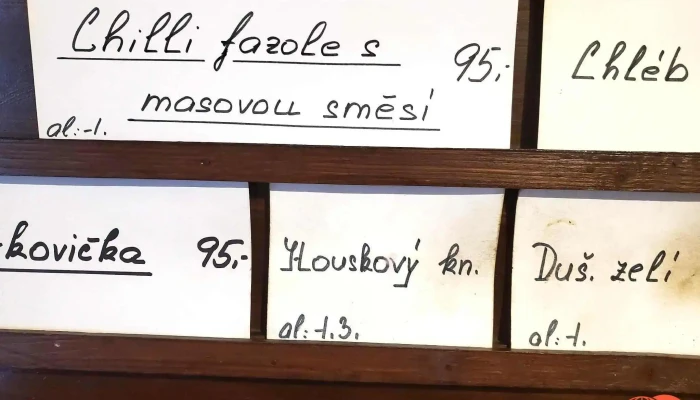 Chilli fazole s
masovou směsí
95,-
al.:1.
Chléb
kovička 95,-
Houskový kn.
al.:1.3.
Duš. zelí
al.:1.